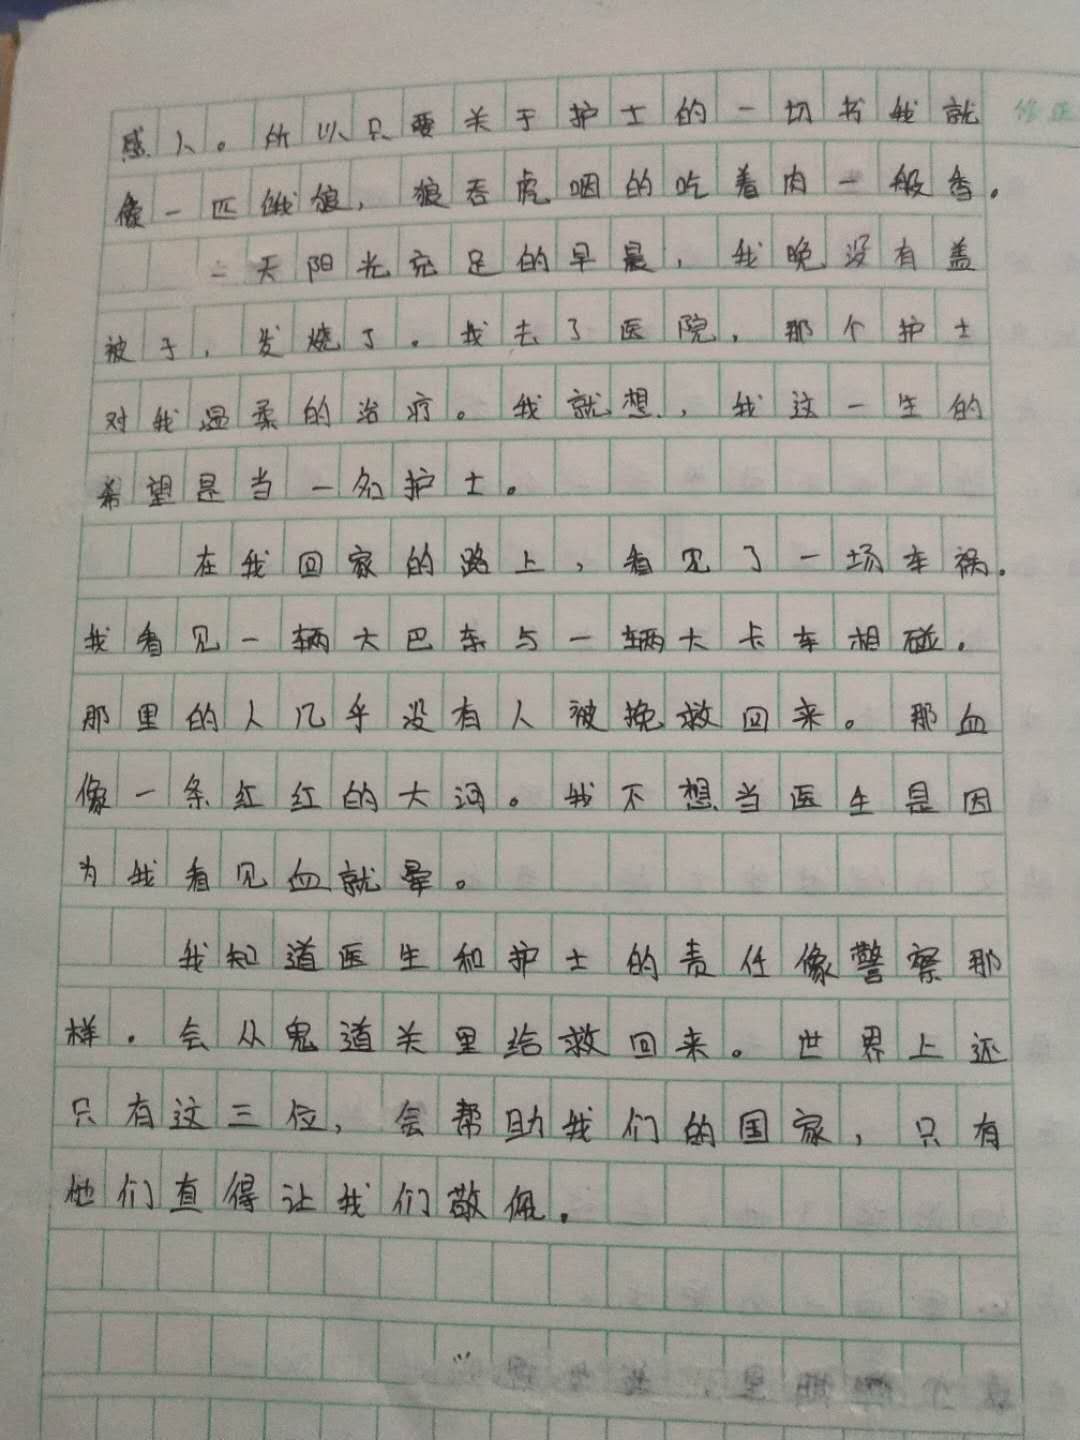 感人。所以只要关于护士的一切书我就
像一匹饿狼，狼吞虎咽的吃着肉一般香。
二天阳光充足的早晨，我晚没有盖
被于，发烧了。我去了医院，那个护士
对我温柔的治疗。我就想，我这一生的
希望是当一名护士。
在我回家的路上，看见了一场车祸。
我看见一辆大巴车与一辆大卡车相碰。
那里的人几乎没有人被挽救回来。那血
像一条红红的大河。我不想当医生是因
为我看见血就晕。
我知道医生和护士的责任像警察那
样。会从鬼道关里给救回来。世界上还
只有这三位，会帮助我们的国家，只有
他们直得让我们敬佩。